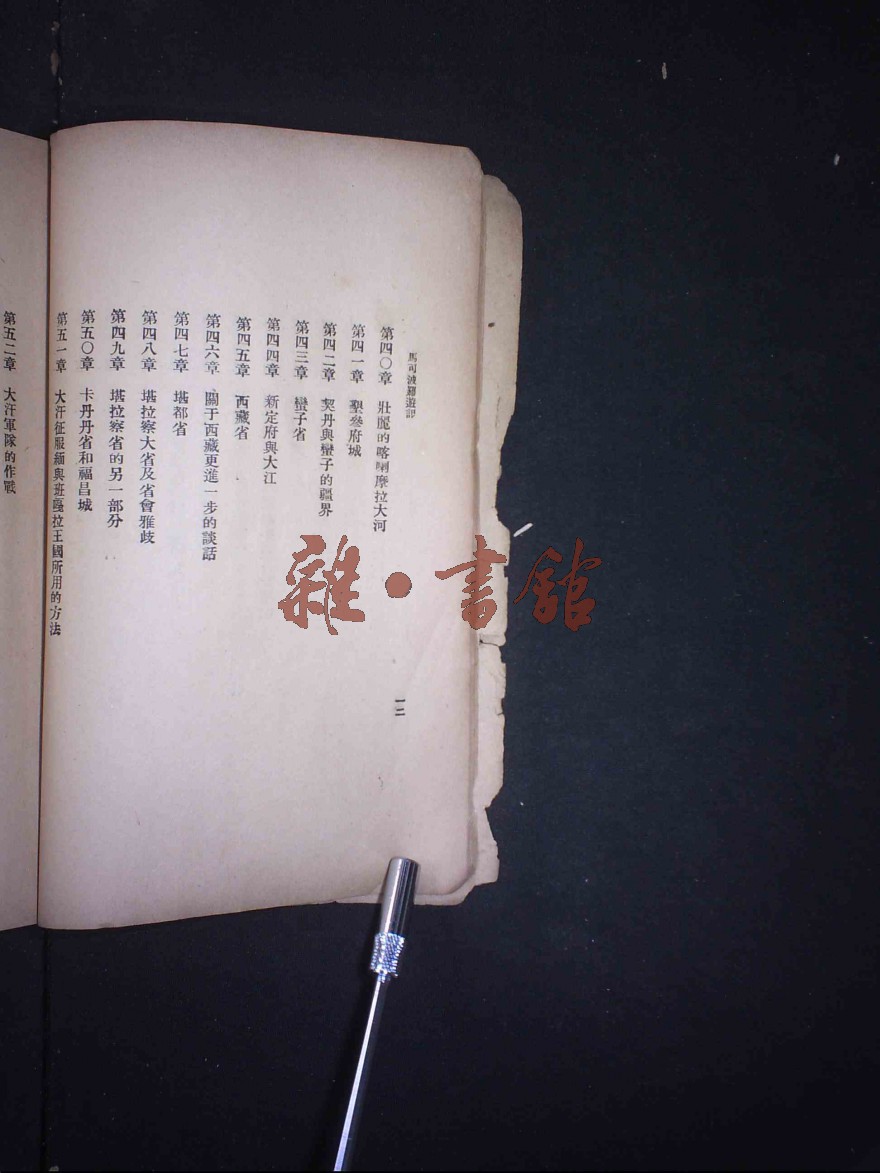 馬可波羅遊記
第四〇章 壯麗的喀喇摩拉大河
第四一章 墾參府城
第四二章 契丹與蠻子的疆界
第四三章 蠻子省
第四四章 新定府與大江
第四五章 西藏省
第四六章 關于西藏更進一步的談話
第四七章 堪都省
第四八章 堪拉察大省及省會雅歧
第四九章 堪拉察省的另一部分
第五〇章 卡丹丹省和福昌城
第五一章 大汗征服緬與班戞拉王國所用的方法
一二
第五二章 大汗軍隊的作戰
雜·書館